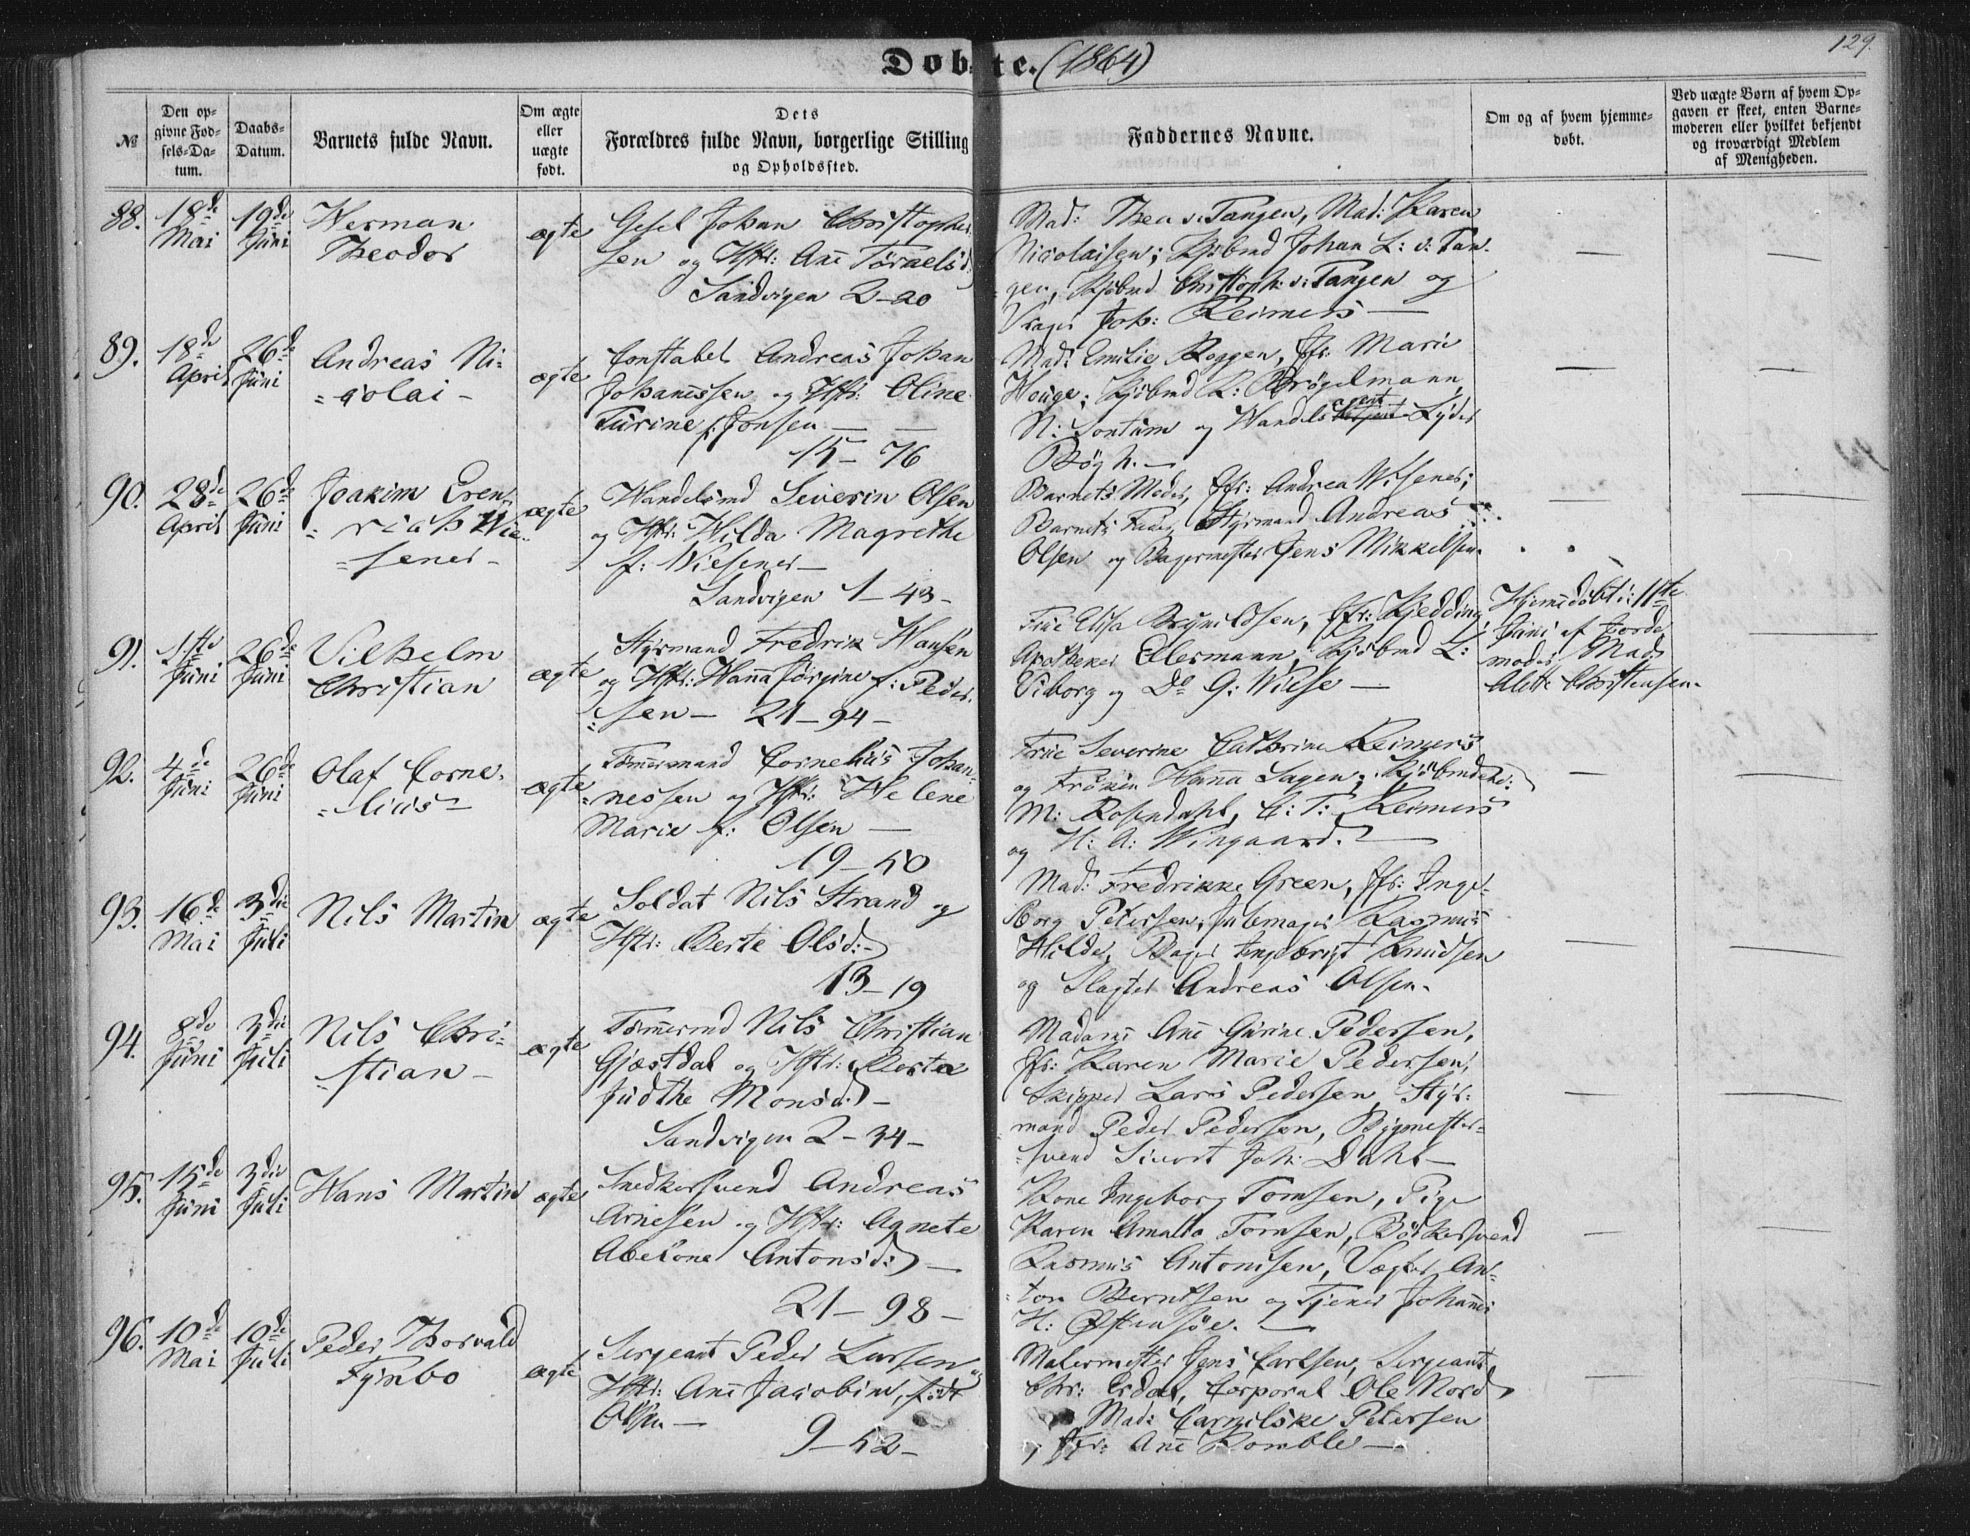 129.
Døbte. (1864)
№
Den opgivne Fødsels-Datum.
Daabs-Datum.
Barnets fulde Navn.
Om ægte eller uægte født.
Dets
Forældres fulde Navn, borgerlige Stilling
og Opholdssted.
Faddernes Navne.
Om og af hvem hjemmedøbt.
Ved uægte Børn af hvem Opgaven er skeet, enten Barnemoderen eller hvilket bekjendt og troværdigt Medlem af Menigheden.
88.
18de Mai
19de Juni
Herman
Theodor
ægte
Gesel Johan Christopher
sen og Hstr: Ane
Sandvigen 2-20
Mad: Thea v. Tangen, Mad: Karen
Nicolaisen; Kjøbmd Johan L: v: Tan-
gen, Kjøbmd Christoph: v: Tangen og
Joh: Reimers —
89.
18de April
26de Juni
Andreas Ni-
colai -
ægte
Constabel Andreas Johan
Johannessen og Hstr: Oline
Turine f: Jonsen —
15-76
Mad: Emilie Roggen, Jfr: Marie
Houge; Kjøbmd L: Brøgelmann,
N: Sontum og Handelsagent Lyder
Bøgh. —
90.
28de April
26de Juni
Joakim
sener -
ægte
Handelsmd Severin Olsen
og Hstr: Hilda Magrethe
f: Wiesener —
Sandvigen 1-43-
Barnets Moder, Jfr: Andrea Wisener;
Barnets Fader, Styrmand Andreas
Olsen og Bagermester Jens Mikkelsen.
91.
1ste Juni
26de Juni
Vilhelm
Christian
ægte
Styrmand Fredrik Hansen
og Hstr: Hanna Jørgine f: Peder-
sen — 21-94-
Frue Elisa Brynildsen, Jfr: Kjedding,
Apotheker Ellermann, Kjøbmd L:
Viborg og Do G: Wiese —
Hjemmedøbt: 11te
Juni af Jorde-
moder Mad:
Alette Christensen.
92.
4de Juni
26de Juni
Olaf Corne-
lius -
ægte
Tømmermand Cornelius Johan-
nessen og Hstr: Helene
Marie f: Olsen —
19-50
Frue Severine Cathrine Reimers
og Frøken Hanna Sagen; Kjøbmdene:
M: Rosendahl, C: T: Reimers
og H: A: Wingaard. —
93.
16de Mai
3die Juli
Nils Martin
ægte
Soldat Nils Strand og
Hstr: Berte Olsd: -
13-19
Mad: Fredrikke Green, Jfr: Inge-
borg Petersen; Rasmus
Hilder, Bager Ingebrigt Knudsen
og Slagter Andreas Olsen.
94.
8de Juni
3die Juli
Nils Chri-
stian -
ægte
Tømmermd Nils Christian
Gjæstdal og Hstr: Berta
Judthe Monsd: -
Sandvigen 2-34-
Madame Ane Gurine Pedersen,
Jfr: Karen Marie Pedersen;
Skipper Lars Pedersen, Styr-
mand Peder Pedersen, Bygmester-
svend Sivert Joh: Dahl —
95.
15de Juni
3die Juli
Hans Martin
ægte
Snedkersvend Andreas
Arnesen og Hstr: Agnete
Abelone Antonsd: —
21-98-
Kone Ingeborg Tomsen, Pige
Karen Amalia Tomsen, Bødkersvend
Rasmus Antonisen, Vægter An-
ton Berntsen og Tjener Johannes
H: Østensøe. —
96.
10de Mai
10de Juli
Peder Thorvald
Fynbo
ægte
Sergeant Peder Larsen og
Hstr: Ane Jacobine, født
Olsen —
9-52-
Malermester Jens Carlsen, Sergeant
Chr: Corporal Ole Nord
Mad: Petersen
Jfr: Ane Romble —